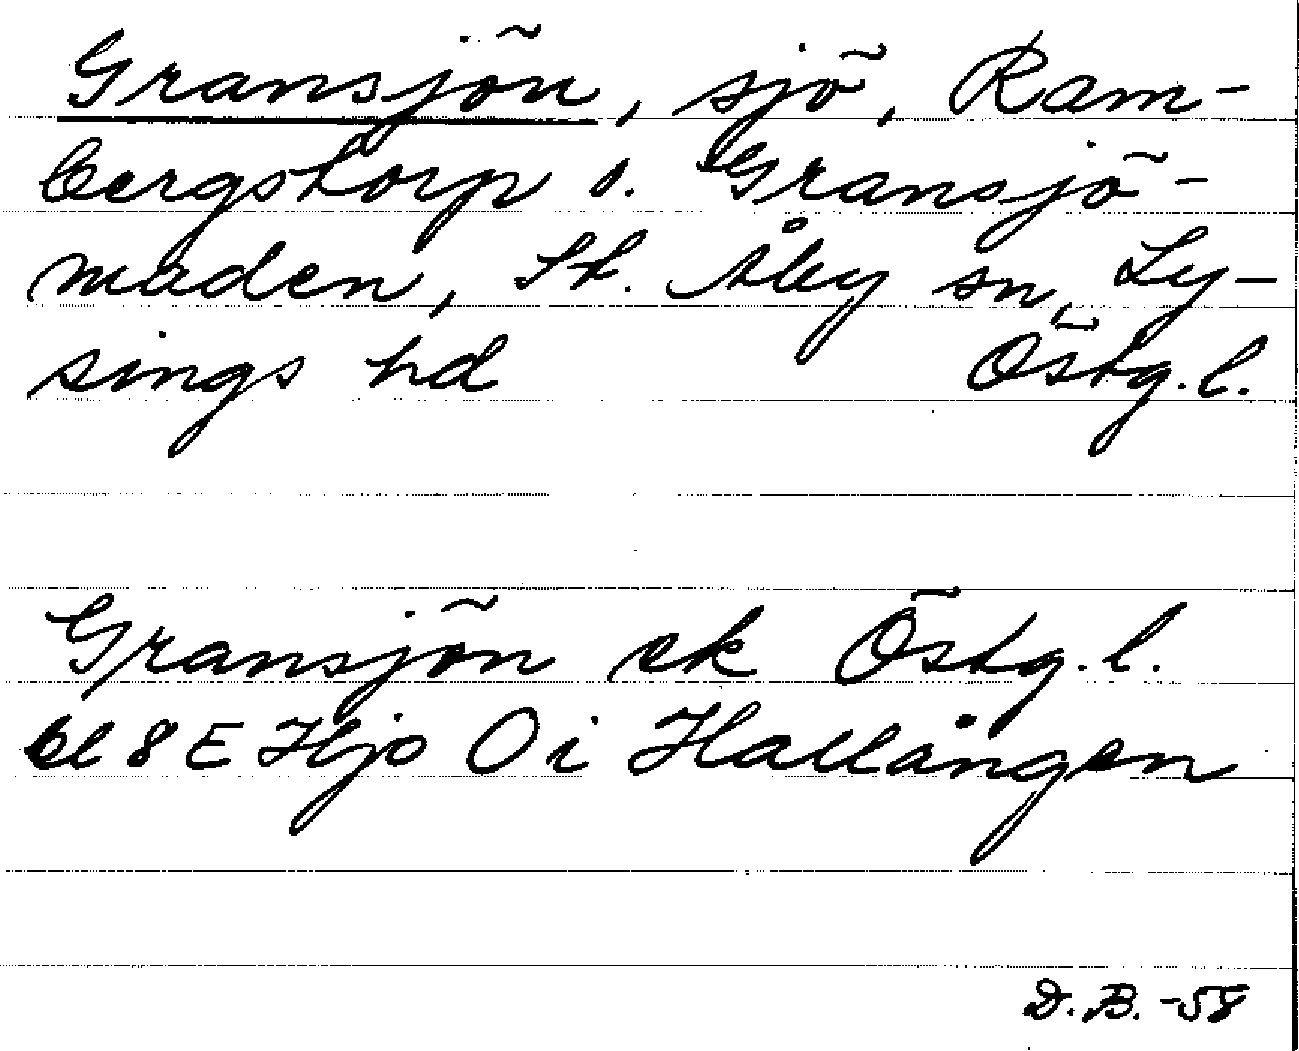 Gransjön, sjö, Ram-
bergstorp o. Gransjö-
maden, St. Åby sn, Ly-
sings hd Östg. l.
Gransjön ek Östg. l.
bl 8 E Hjo O i Hallången
D. B. -58